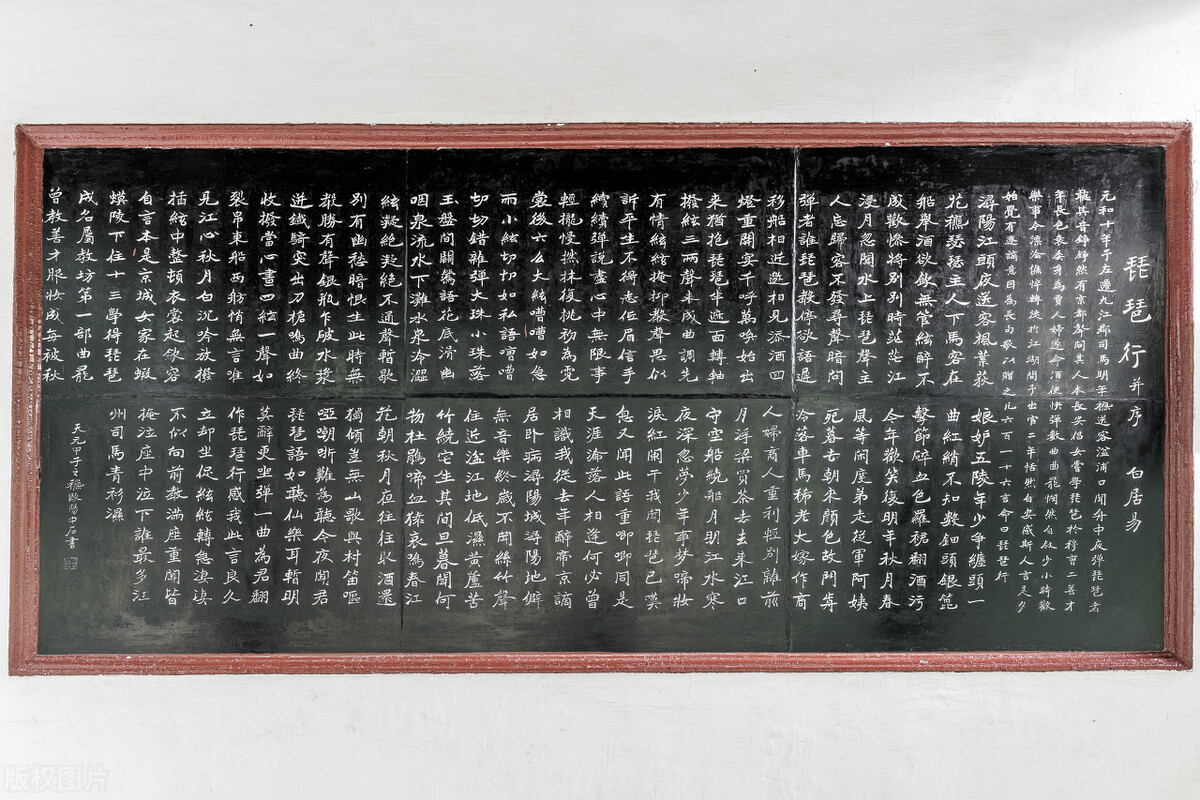 琵琶行并序 白居易
元和十年予左遷九江郡司馬明年穐送客湓浦口聞舟中夜彈琵琶者
聽其音錚錚然有京都聲問其人本長安倡女嘗學琵琶於穆曹二善才
年長色衰委身為賈人婦遂命酒使快彈數曲曲罷憫然自敘少小時歡
樂事今漂淪憔悴轉徙於江湖間予出官二年恬然自安感斯人言是夕
始覺有遷謫意因為長句歌以贈之凡六百一十六言命曰琵琶行
潯陽江頭夜送客楓葉荻
花穐瑟瑟主人下馬客在
船舉酒欲飲無管絃醉不
成歡慘將別別時茫茫江
浸月忽聞水上琵琶聲主
人忘歸客不發尋聲暗問
彈者誰琵琶聲停欲語遲
移船相近邀相見添酒四
燈重開宴千呼萬喚始出
來猶抱琵琶半遮面轉軸
撥絃三兩聲未成曲調先
有情絃絃掩抑聲聲思似
訴平生不得志低眉信手
續續彈說盡心中無限事
輕攏慢撚抹復挑初為霓
裳後六么大絃嘈嘈如急
雨小絃切切如私語嘈嘈
切切錯雜彈大珠小珠落
玉盤間關鶯語花底滑幽
咽泉流水下灘水泉冷澀
絃凝絕凝絕不通聲暫歇
別有幽愁暗恨生此時無
聲勝有聲銀瓶乍破水漿
迸鐵騎突出刀槍鳴曲終
收撥當心畫四絃一聲如
裂帛東船西舫悄無言唯
見江心秋月白沉吟放撥
插絃中整頓衣裳起斂容
自言本是京城女家在蝦
蟆陵下住十三學得琵琶
成名屬教坊第一部曲罷
曾教善才服妝成每被秋
娘妒五陵年少爭纏頭一
曲紅綃不知數鈿頭銀篦
擊節碎血色羅裙翻酒污
今年歡笑復明年秋月春
風等閑度弟走從軍阿姨
死暮去朝來顏色故門前
冷落車馬稀老大嫁作商
人婦商人重利輕別離前
月浮梁買茶去去來江口
守空船繞船月明江水寒
夜深忽夢少年事夢啼妝
淚紅闌干我聞琵琶已嘆
息又聞此語重唧唧同是
天涯淪落人相逢何必曾
相識我從去年辭帝京謫
居臥病潯陽城潯陽地僻
無音樂終歲不聞絲竹聲
住近湓江地低濕黃蘆苦
竹繞宅生其間旦暮聞何
物杜鵑啼血猿哀鳴春江
花朝秋月夜往往取酒還
獨傾豈無山歌與村笛嘔
啞嘲哳難為聽今夜聞君
琵琶語如聽仙樂耳暫明
莫辭更坐彈一曲為君翻
作琵琶行感我此言良久
立却坐促絃絃轉急淒淒
不似向前聲滿座重聞皆
掩泣座中泣下誰最多江
州司馬青衫濕
天元甲子之穐歐陽中石書
版权图片